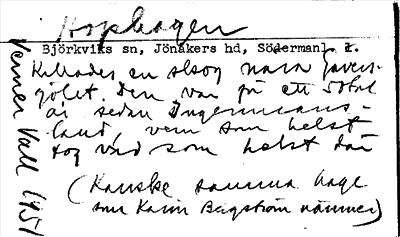 Hophagen
Björkviks sn, Jönåkers hd, Söderman. l.
Kallades en skog nära Javers-
gölet. Den var på ett 50tal
år sedan Ingenmans-
land, vem som helst
tog ved som helst där
(Kanske samma hage
som Karin Bergström nämner)
Verner Vall 1951